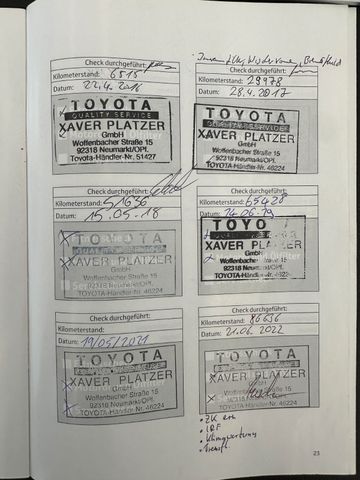 Check durchgeführt:
Kilometerstand: 6515
Datum: 22.4.2016
TOYOTA
QUALITY SERVICE
XAVER PLATZER
GmbH
Woffenbacher Straße 15
92318 Neumarkt/OPf.
Toyota-Händler-Nr. 51427
Check durchgeführt:
Kilometerstand: 29978
Datum: 28.4.2017
TOYOTA
QUALITY SERVICE
XAVER PLATZER
GmbH
Woffenbacher Straße 15
92318 Neumarkt/OPf.
TOYOTA-Händler-Nr. 46224
Check durchgeführt:
Kilometerstand: 51636
Datum: 15.05.18
TOYOTA
XAVER PLATZER
GmbH
Woffenbacher Straße 15
92318 Neumarkt/OPf.
TOYOTA-Händler-Nr. 46224
Check durchgeführt:
Kilometerstand: 65428
Datum: 14.06.19
TOYO
XAVER PLATZER
GmbH
Woffenbacher Straße 15
92318 Neumarkt/OPf.
TOYOTA-Händler-Nr. 46224
Check durchgeführt:
Kilometerstand:
Datum: 19/05/2021
TOYOTA
XAVER PLATZER
GmbH
Woffenbacher Straße 15
92318 Neumarkt/OPf.
TOYOTA-Händler-Nr. 46224
Check durchgeführt:
Kilometerstand: 86656
Datum: 21.06.2022
TOYOTA
XAVER PLATZER
GmbH
Woffenbacher Straße 15
92318 Neumarkt/OPf.
TOYOTA-Händler-Nr. 46224
• Klimawartung
23